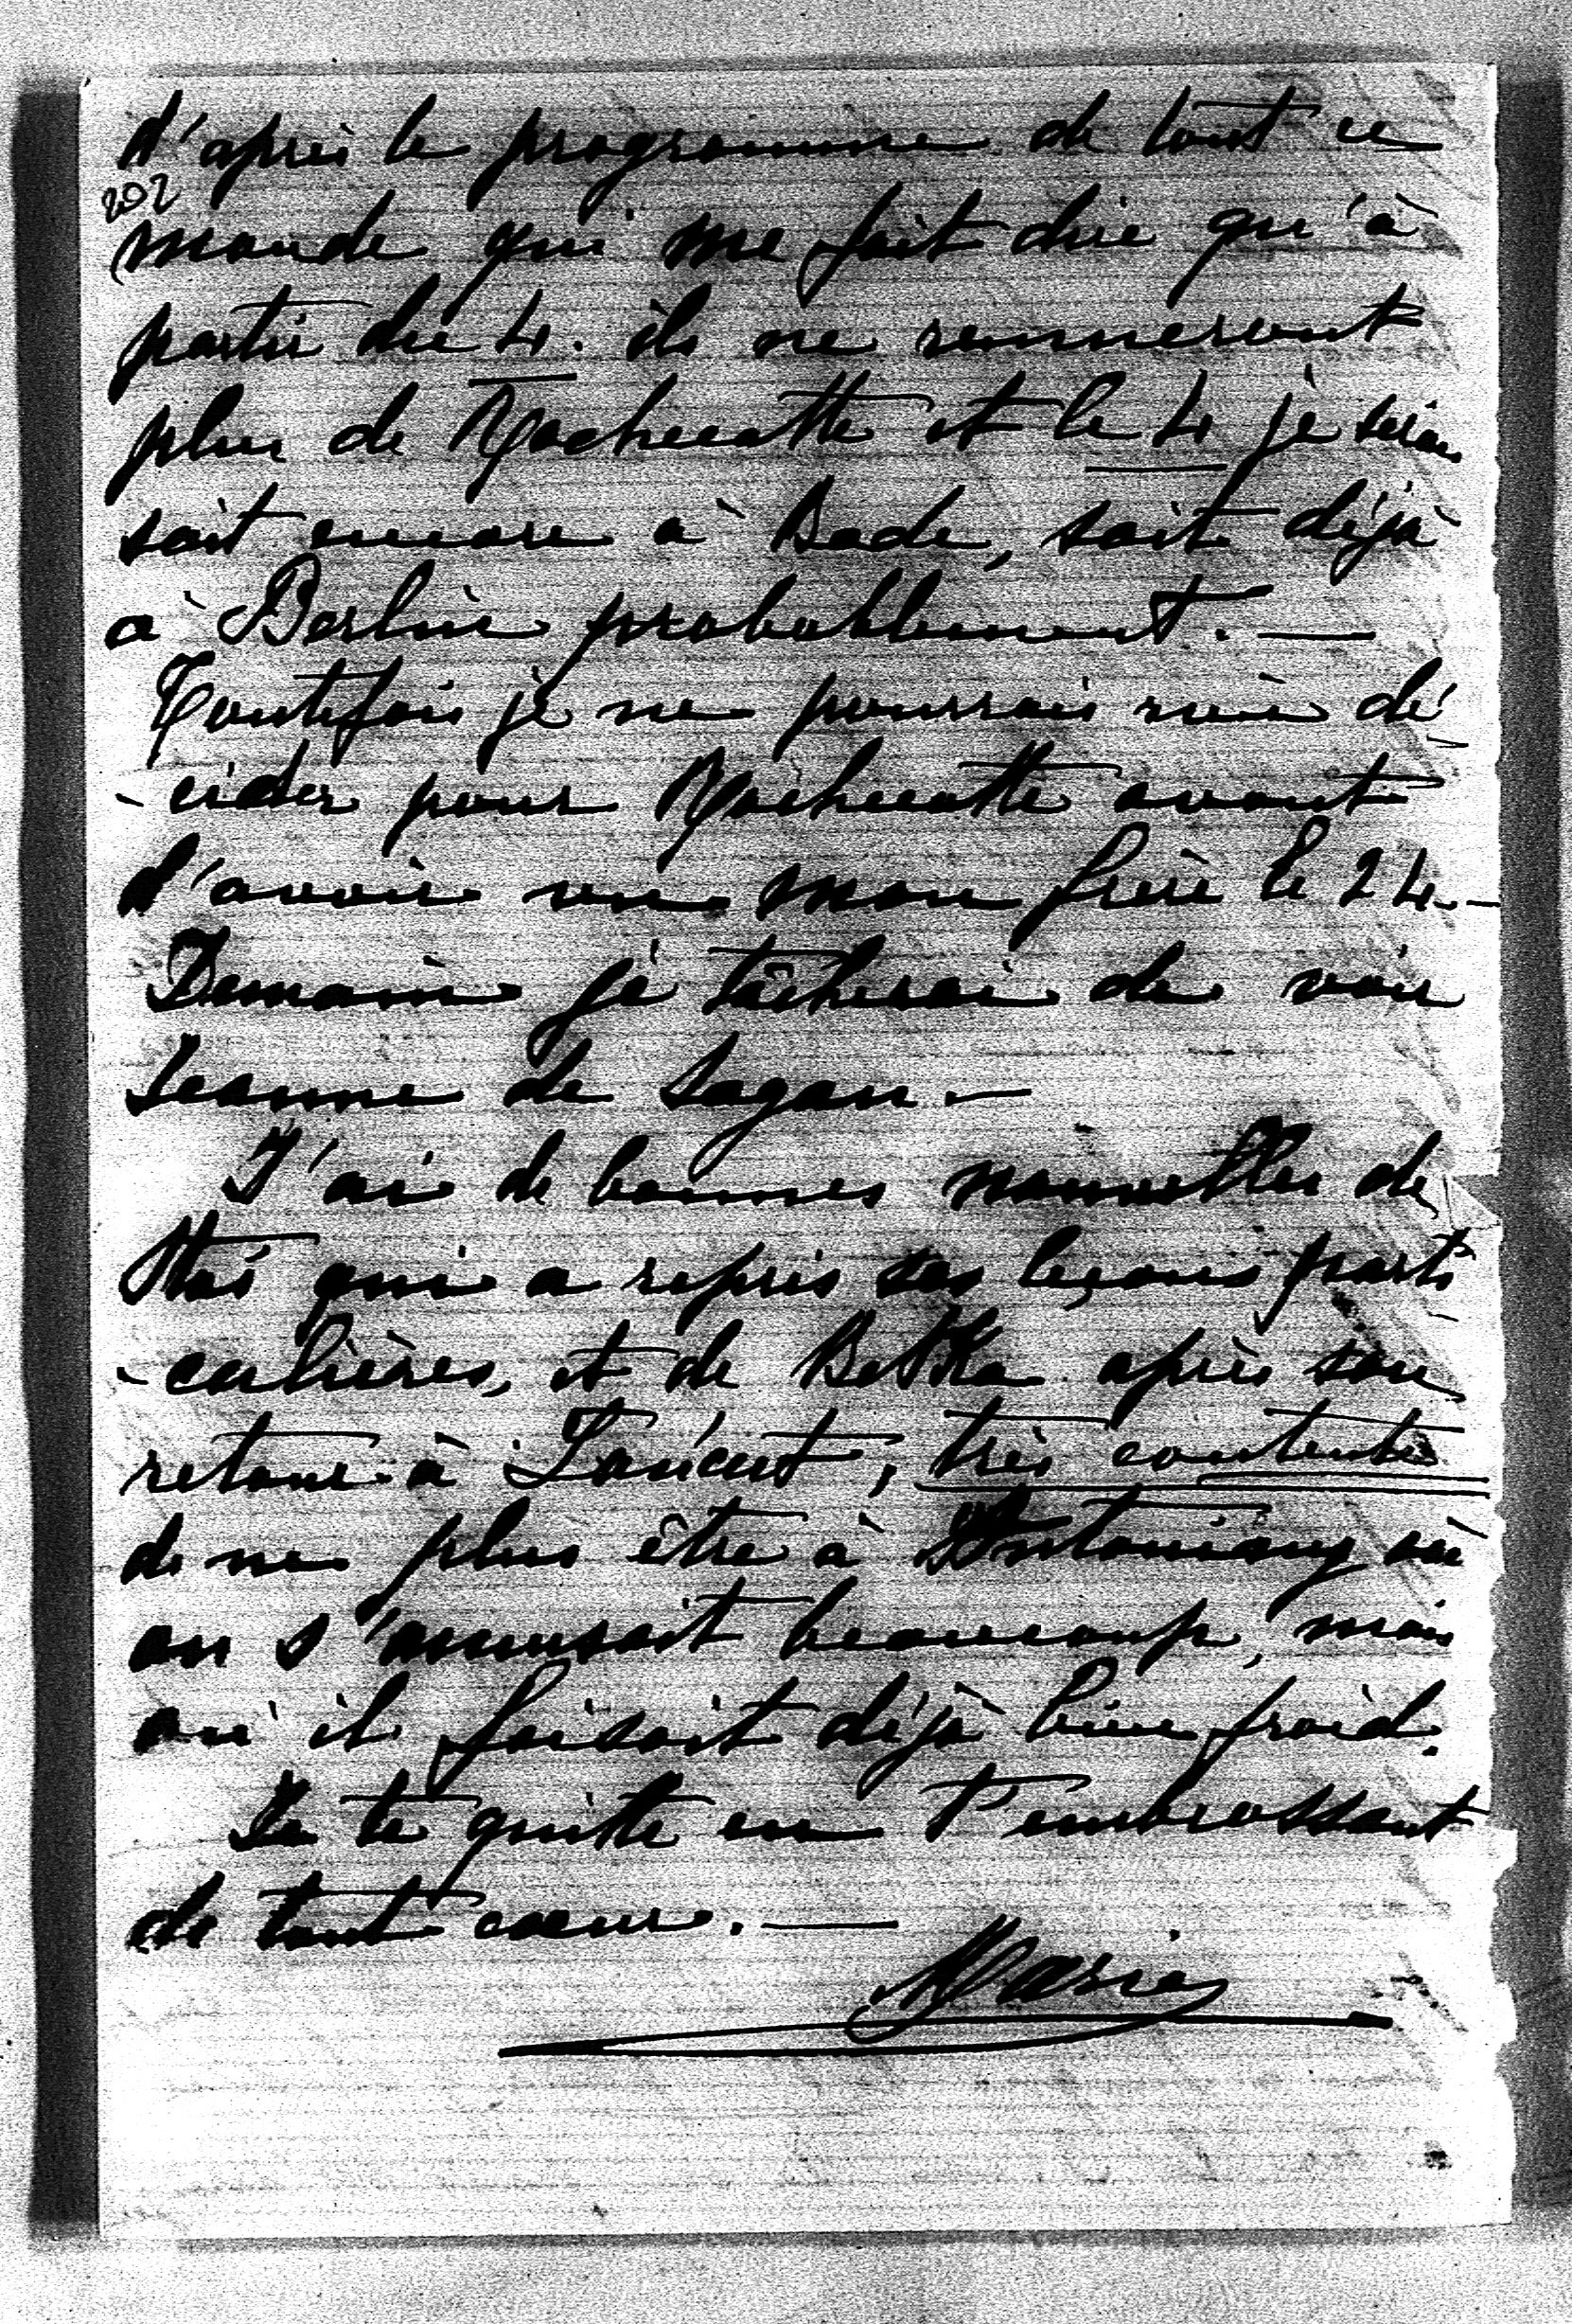 d'après le programme de tout ce
202
monde qui me fait dire qu'à
partir du 4. ils ne remueront
plus de Rochecotte et le 4 je serai
soit encore à Bade, soit déjà
à Berlin probablement. —
Toutefois je ne pourrais rien dé
- cider pour Rochecotte avant
d'avoir vu mon frère le 24. -
Demain je tâcherai de voir
Jeanne de Sagan. —
J'ai de bonnes nouvelles de
qui a repris ses leçons parti
- culières, et de Betka après son
retour à Łańcut, très contente
de ne plus être à Antoniny où
on s'amusait beaucoup, mais
où il faisait déjà bien froid.
Je te quitte en t'embrassant
de tout cœur. —
Marie